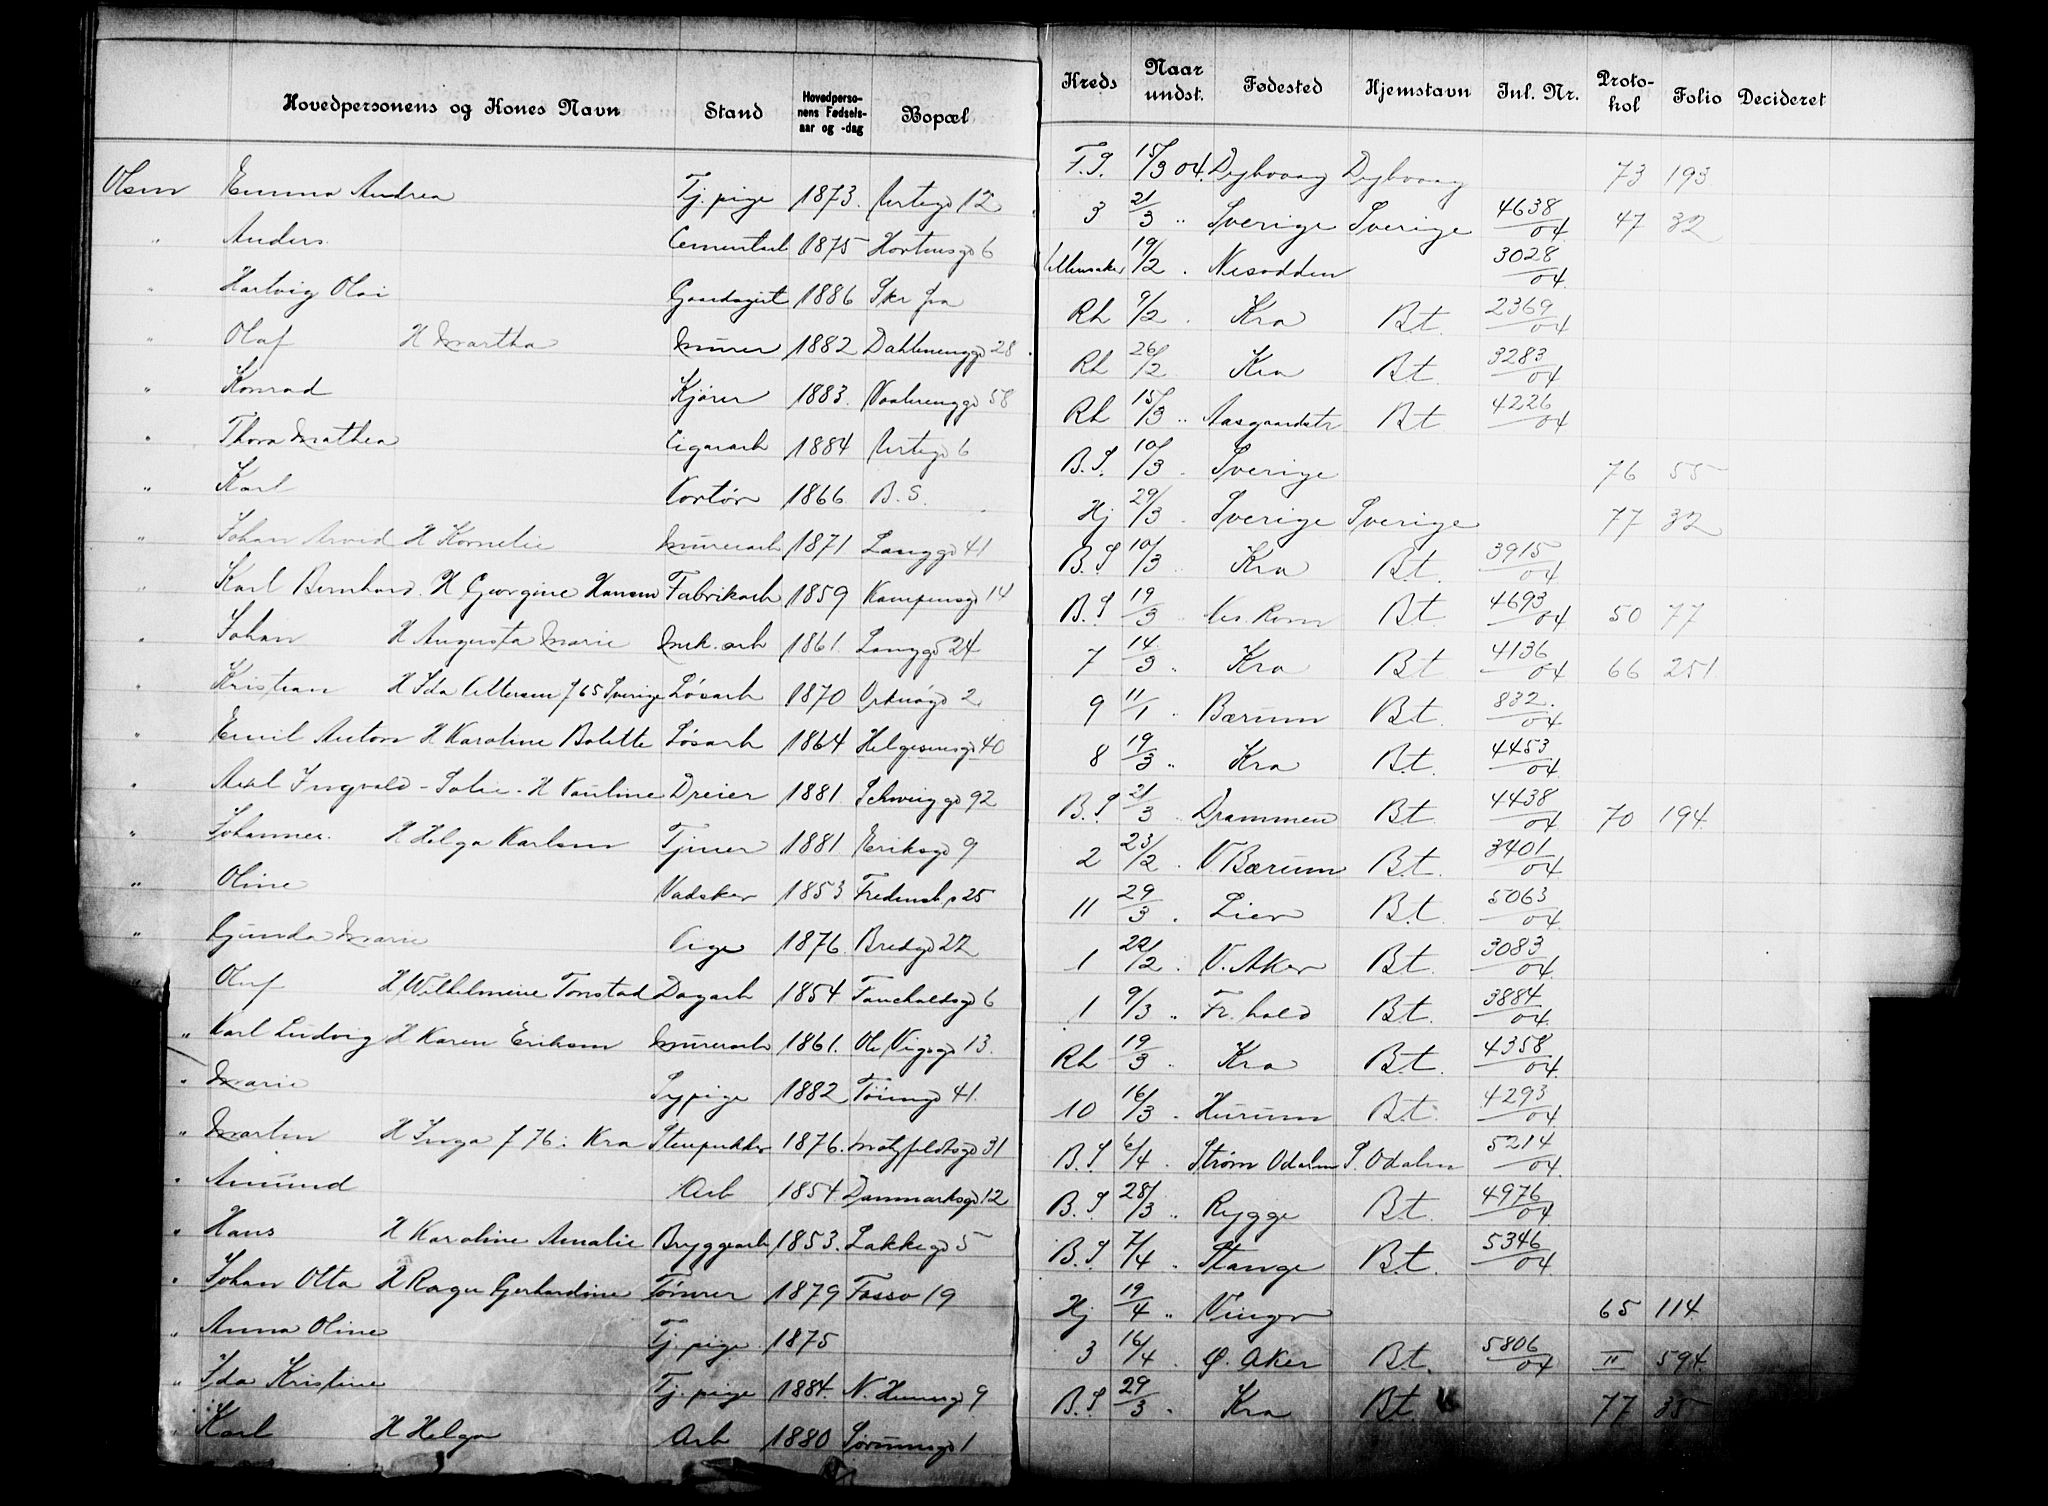 Hovedpersonens og Kones Navn Stand Hovedperso-nens Fødsels-aar og -dag Bopæl Kreds Naar undst. Fødested Hjemstavn Inl. Nr. Proto-kol Folio Decideret
Olsen Emma Andrea Tj. pige 1873. Urtegd 12 F.S. 15/3 04. Dybvaag Dybvaag 73 193
" Anders Cementarb 1875 Hortensgd 6 3 21/3 " Sverige Sverige 4638/04 47 32
" Hartvig Olai Gaardsgut 1886 Skr fra Ullensaker 19/2 . Nesodden 3028/04
" Olaf H Martha Murer 1882 Dahlenenggd 28 Rh 9/2 . Kra Bt. 2369/04
" Konrad Kjører 1883. Vaalerenggd 58 Rh 26/2 Kra Bt. 3283/04
" Thora Mathea Cigararb 1884 Urtegd 6 Rh 15/3 " Aasgaardstr Bt 4226/04
" Karl Kontor 1866 B.S. B.S. 10/3 . Sverige 76 55
" Johan Arvid H Kornelie Murerarb 1871 Langgd 41 Hj 29/3 . Sverige Sverige 77 32
" Karl Bernhard. H Georgine Hansen Fabrikarb 1859 Kampensgd 14 B.S 10/3 " Kra Bt. 3915/04
" Johan H Augusta Marie Mek. arb 1861. Langgd 24 B.S 19/3 . Nes Rom Bt. 4693/04 50 77
" Kristian H Ida f 65 Sverige Løsarb 1870 Orknøgd 2 7 14/3 " Kra Bt 4136/04 66 251
" Emil Anton H Karoline Bolette Løsarb 1864 Helgesensgd 40 9 11/1 " Bærum Bt. 832/04
" Axel Ingvald - Solie - H Pauline Dreier 1881 Schweiggd 92 8 19/3 " Kra Bt. 4453/04
" Johannes. H Helga Karlsen Tjener 1881 Eriksgd 9 B.S 21/3 " Drammen Bt. 4438/04 70 194
" Oline Vadsker 1853 Fredensb. 25 2 23/2 . V Bærum Bt. 3401/04
" Gunda Marie Pige 1876. Bredgd 22 11 29/3 . Lier Bt. 5063/04
" Oluf H Wilhelmine Tonstad Dagarb 1854 Fauchaldsgd 6 1 22/2 . V. Aker Bt. 3083/04
" Karl Ludvig H Karen Eriksen Murerarb 1861. Ole Vigsgd 13. 1 9/3 " Fr. hald Bt. 3884/04
" Marie Sypige 1882 Tøiengd 41. Rh 19/3 " Kra Bt. 4358/04
" Martin H Inga f 76 i Kra Stenpukker 1876. Motzfeldtsgd 31 10 16/3 . Hurum Bt. 4293/04
" Amund Arb 1854 Danmarksgd 12 B.S 6/4 . Strøm Odalen S. Odalen 5214/04
" Hans H Karoline Amalie Bryggearb 1853. Lakkegd 5 B.S 28/3 " Rygge Bt. 4976/04
" Johan Otto H Gerhardine Tømrer 1879 Fossv 19 B.S 7/4 . Stange Bt. 5346/04
" Anna Oline Tj. pige 1875 Hj 19/4 " Vinger 65 114
" Ida Kristine Tj. pige 1884. N. 9 3 16/4 . Ø. Aker Bt. 5806/04 II 594
" Karl H Helga Arb 1880 Sørumsgd 1 B.S 29/3 . Kra Bt 77 35